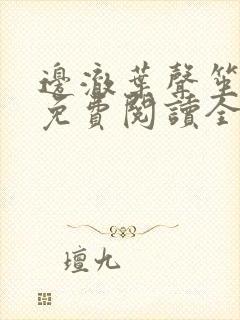 邊澈葉聲笙
免費閱讀全
壇九